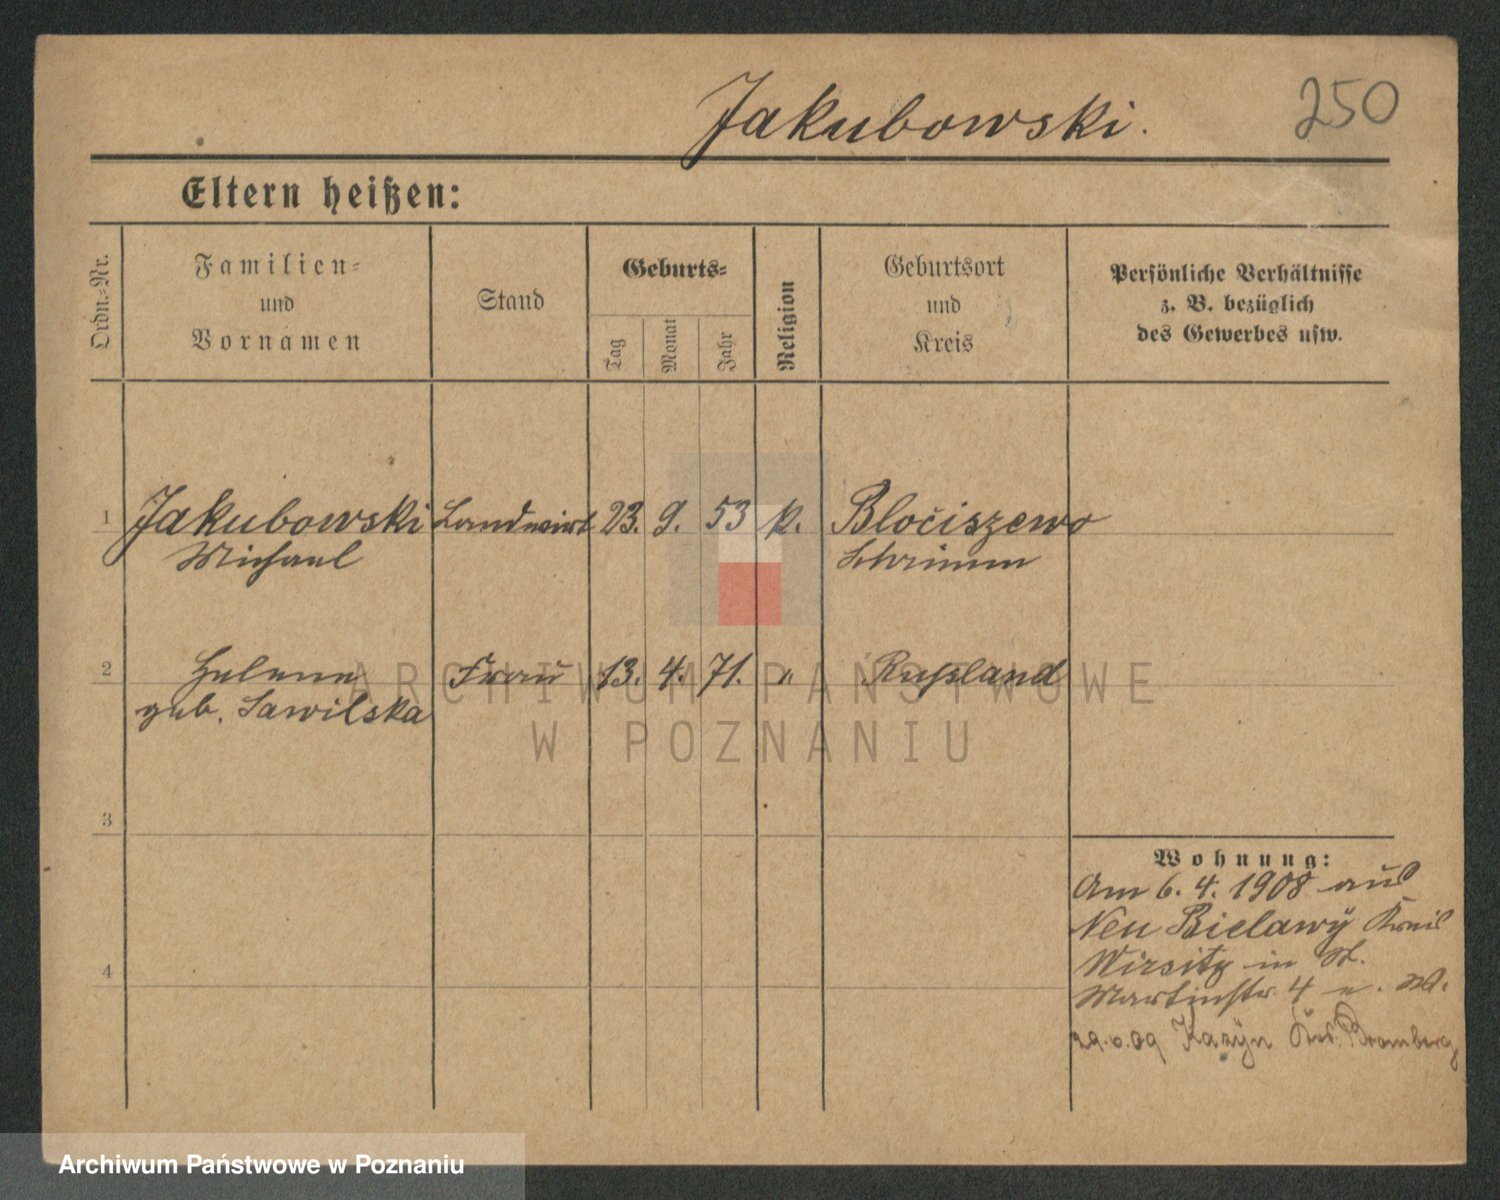 Jakubowski.
250
Eltern heißen:
Ordn.-Nr.
Familien-
und
Vornamen
Stand
Geburts-
Tag
Monat
Jahr
Religion
Geburtsort
und
Kreis
Persönliche Verhältnisse
z. B. bezüglich
des Gewerbes usw.
1 Jakubowski Landwirt 23. 9. 53 k. Bločiszewo
Michael Schrimm
2 Helene Frau 13. 4. 71. " Russland
geb. Sawilska
3
4
Wohnung:
Am 6. 4. 1908 aus
Neu Bielawÿ Kreis
Wirsitz in St.
Martinstr. 4 n. W.
09 Bromberg
ARCHIWUM PAŃSTWOWE
W POZNANIU
Archiwum Państwowe w Poznaniu